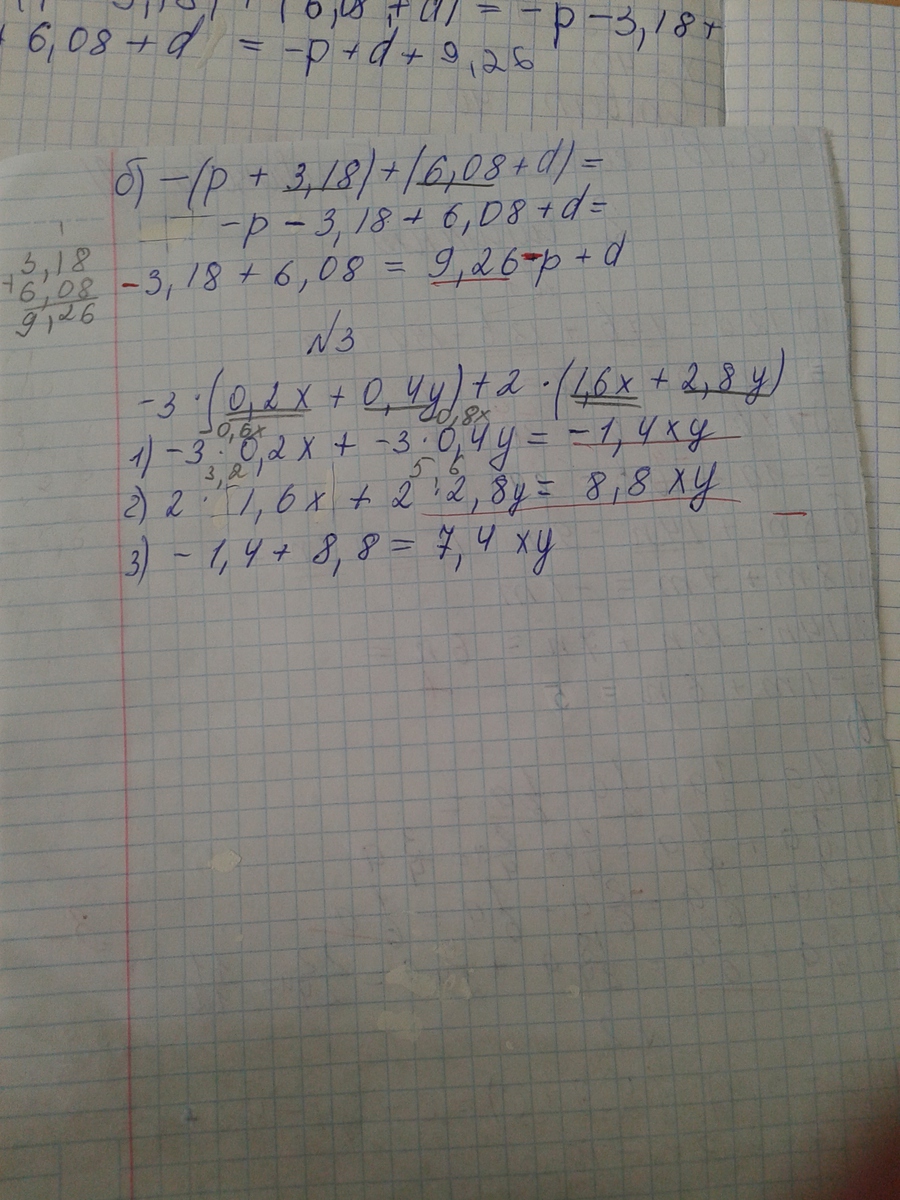 6,08 + d) = -p - 3,18 +
+ 6,08 + d = -p + d + 9,26
б) -(p + 3,18) + (6,08 + d) =
-p - 3,18 + 6,08 + d =
-3,18 + 6,08 = 9,26 - p + d
3,18
+ 6,08
9,26
№3
-3 · (0,2x + 0,4y) + 2 · (1,6x + 2,8y)
0,6x 0,8x
1) -3 · 0,2x + -3 · 0,4y = -1,4xy
3,2 5 6
2) 2 · 1,6x + 2 · 2,8y = 8,8 xy
3) - 1,4 + 8,8 = 7,4 xy